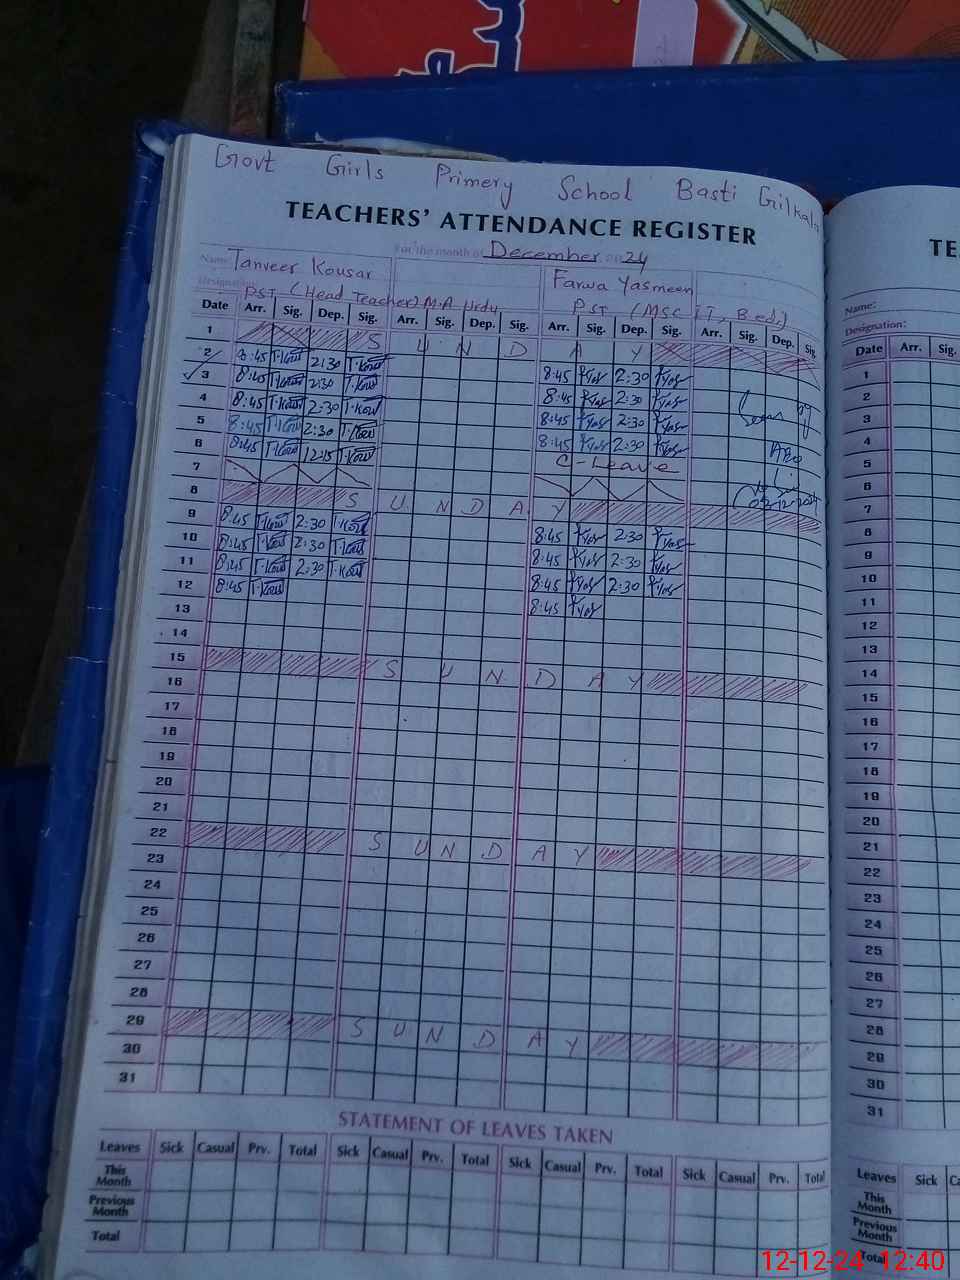 Govt Girls Primery School Basti Gilkala
TEACHERS' ATTENDANCE REGISTER
TE
Name: Tanveer Kousar For the month of December on 24 Farwa Yasmeen
Name:
Designation: PST (Head Teacher) M.A Urdu PST (MSC IT, B.ed.)
Designation:
Date Arr. Sig. Dep. Sig. Arr. Sig. Dep. Sig. Arr. Sig. Dep. Sig. Arr. Sig. Dep. Sig
Date Arr. Sig.
1 S U N D A Y
2 8:45 T.Kou 2:30 T.Kou 8:45 FYas 2:30 FYas
3 8:45 T.Kou 2:30 T.Kou 8:45 FYas 2:30 FYas
4 8:45 T.Kou 2:30 T.Kou 8:45 FYas 2:30 FYas
5 8:45 T.Kou 2:30 T.Kou 8:45 FYas 2:30 FYas
6 8:45 T.Kou 12:15 T.Kou C-Leave
7
8 S U N D A Y
9 8:45 T.Kou 2:30 T.Kou 8:45 FYas 2:30 FYas
10 8:45 T.Kou 2:30 T.Kou 8:45 FYas 2:30 FYas
11 8:45 T.Kou 2:30 T.Kou 8:45 FYas 2:30 FYas
12 8:45 T.Kou 8:45 FYas
13
14
15 S U N D A Y
16
17
18
19
20
21
22 S U N D A Y
23
24
25
26
27
28
29 S U N D A Y
30
31
1
2
3
4
5
6
7
8
9
10
11
12
13
14
15
16
17
18
19
20
21
22
23
24
25
26
27
28
29
30
31
STATEMENT OF LEAVES TAKEN
Leaves Sick Casual Prv. Total Sick Casual Prv. Total Sick Casual Prv. Total Sick Casual Prv. Total
This Month
Previous Month
Total
Leaves Sick Ca
This Month
Previous Month
Total
12-12-24 12:40